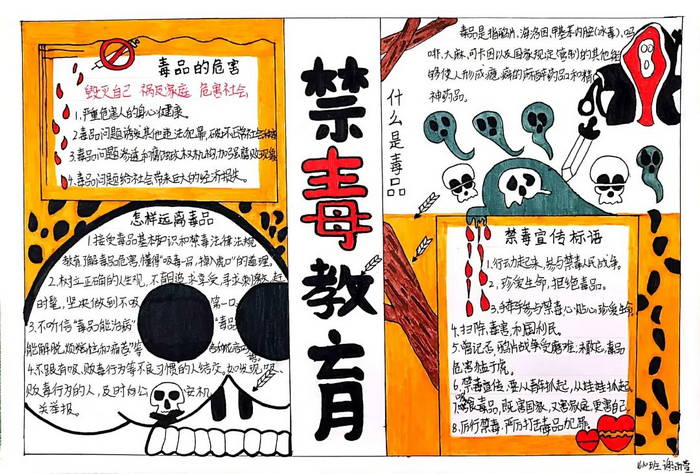 毒品的危害
毁灭自己 祸及家庭 危害社会
1.严重危害人的身心健康。
2.毒品问题诱发其他违法犯罪,破坏正常社会
3.毒品问题
4.毒品问题给社会带来巨大的经济损失。
怎样远离毒品
1.接受毒品基本知识和禁毒法律法规
教育,了解毒品危害,懂得"吸毒一口,掉入虎口"的道理。
2.树立正确的人生观,不盲目追求享受,寻求刺激,赶
时髦,坚决做到不吸 第一口。
3.不听信"毒品能治病" "毒品
能解脱烦恼
4.不 吸毒、贩毒行为等不良习惯的人结交。如发现吸、
贩毒行为的人,及时向公 安机
关举报。
禁毒教育
什么是毒品
毒品是指鸦片、海洛因、甲基苯丙胺(冰毒)、吗
啡、大麻、可卡因以及国家规定管制的其他能
够使人形成瘾癖的麻醉药品和精
神药品。
禁毒宣传标语
1.行动起来,参与禁毒人民战争。
2.珍爱生命,拒绝毒品。
3.携手参与禁毒 心贴心珍爱生命
4.扫除毒害,利国利民。
5.曾记否,鸦片战争受磨难 毒品
危害猛于虎。
6.禁毒宣传,要从青年抓起,从娃娃抓起。
7.吸食毒品,既害国家,又害家庭,更害自己。
8.厉行禁毒,严厉打击毒品犯罪。